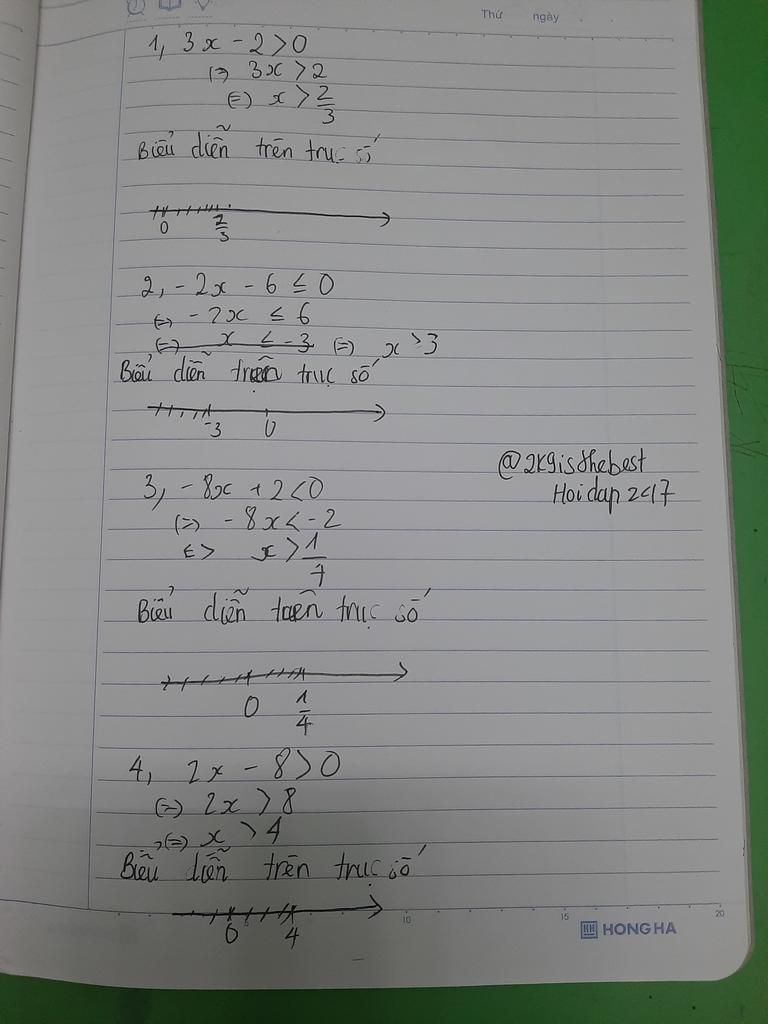 Thứ ngày
1, 3x - 2 > 0
(=) 3x > 2
(=) x > 2/3
Biểu diễn trên trục số
0 2/3
2, - 2x - 6 ≤ 0
(=) - 2x ≤ 6
(=) x ≤ -3 (=) x ≥ 3
Biểu diễn trên trục số
-3 0
@2k9isthebest
Hoidap 247
3, - 8x + 2 < 0
(=) - 8x < -2
<=> x > 1/7
Biểu diễn trên trục số
0 1/4
4, 2x - 8 > 0
(=) 2x > 8
(=) x > 4
Biểu diễn trên trục số
0 4
5 10 15 20
HONG HA